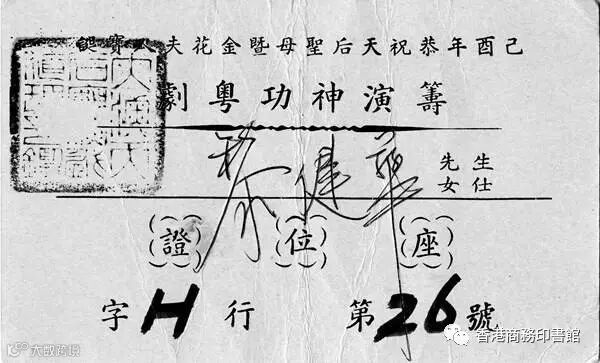 己酉年恭祝天后聖母暨金花夫人寶誕
籌演神功粵劇
健華
先生
女仕
座位證
字 H 行 第 26 號
香港商務印書館
大數跨境